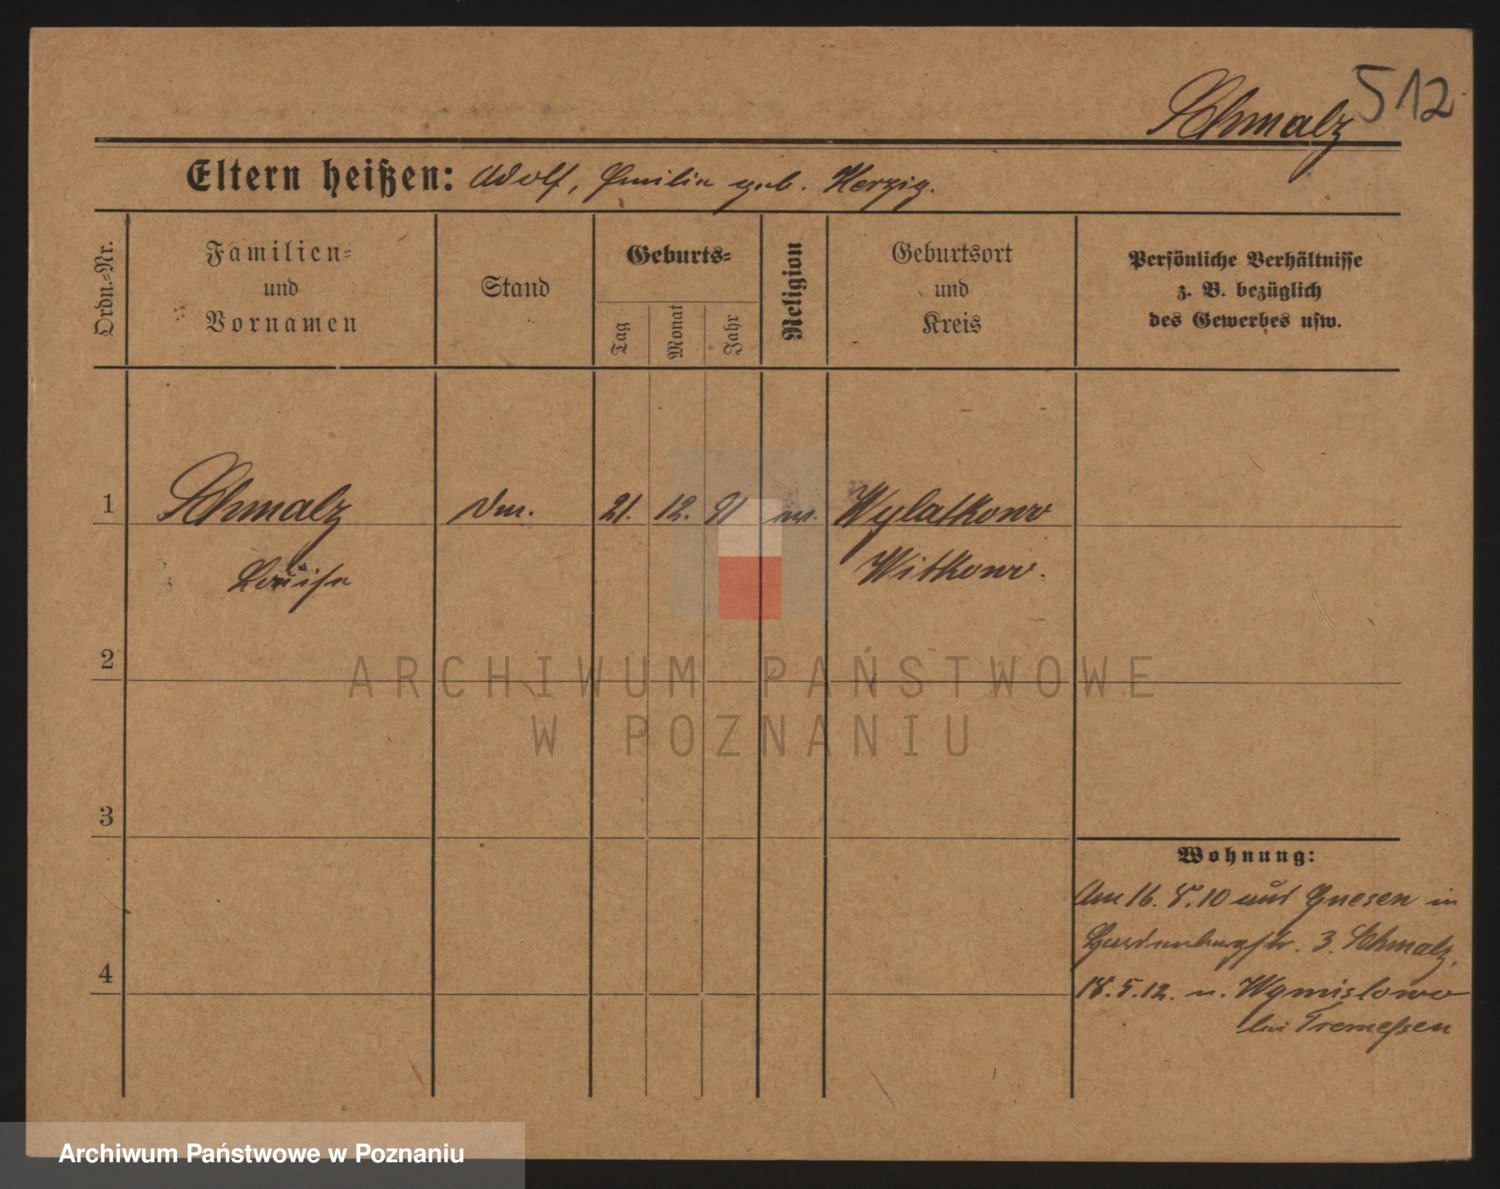 Schmalz 512
Eltern heißen: Adolf, Emilie geb. Herzig.
Ordn.-Nr.
Familien-
und
Vornamen
Stand
Geburts-
Tag
Monat
Jahr
Religion
Geburtsort
und
Kreis
Persönliche Verhältnisse
z. B. bezüglich
des Gewerbes usw.
1 Schmalz 21. 12. 91 ev. Wylatkowo
Louise Witkowo.
2
3
4
Wohnung:
Am 16. 8. 10 aus Gnesen in
Hardenbergstr. 3. Schmalz.
18. 5. 12. n. Wymislowo
bei Tremessen
ARCHIWUM PAŃSTWOWE
W POZNANIU
Archiwum Państwowe w Poznaniu